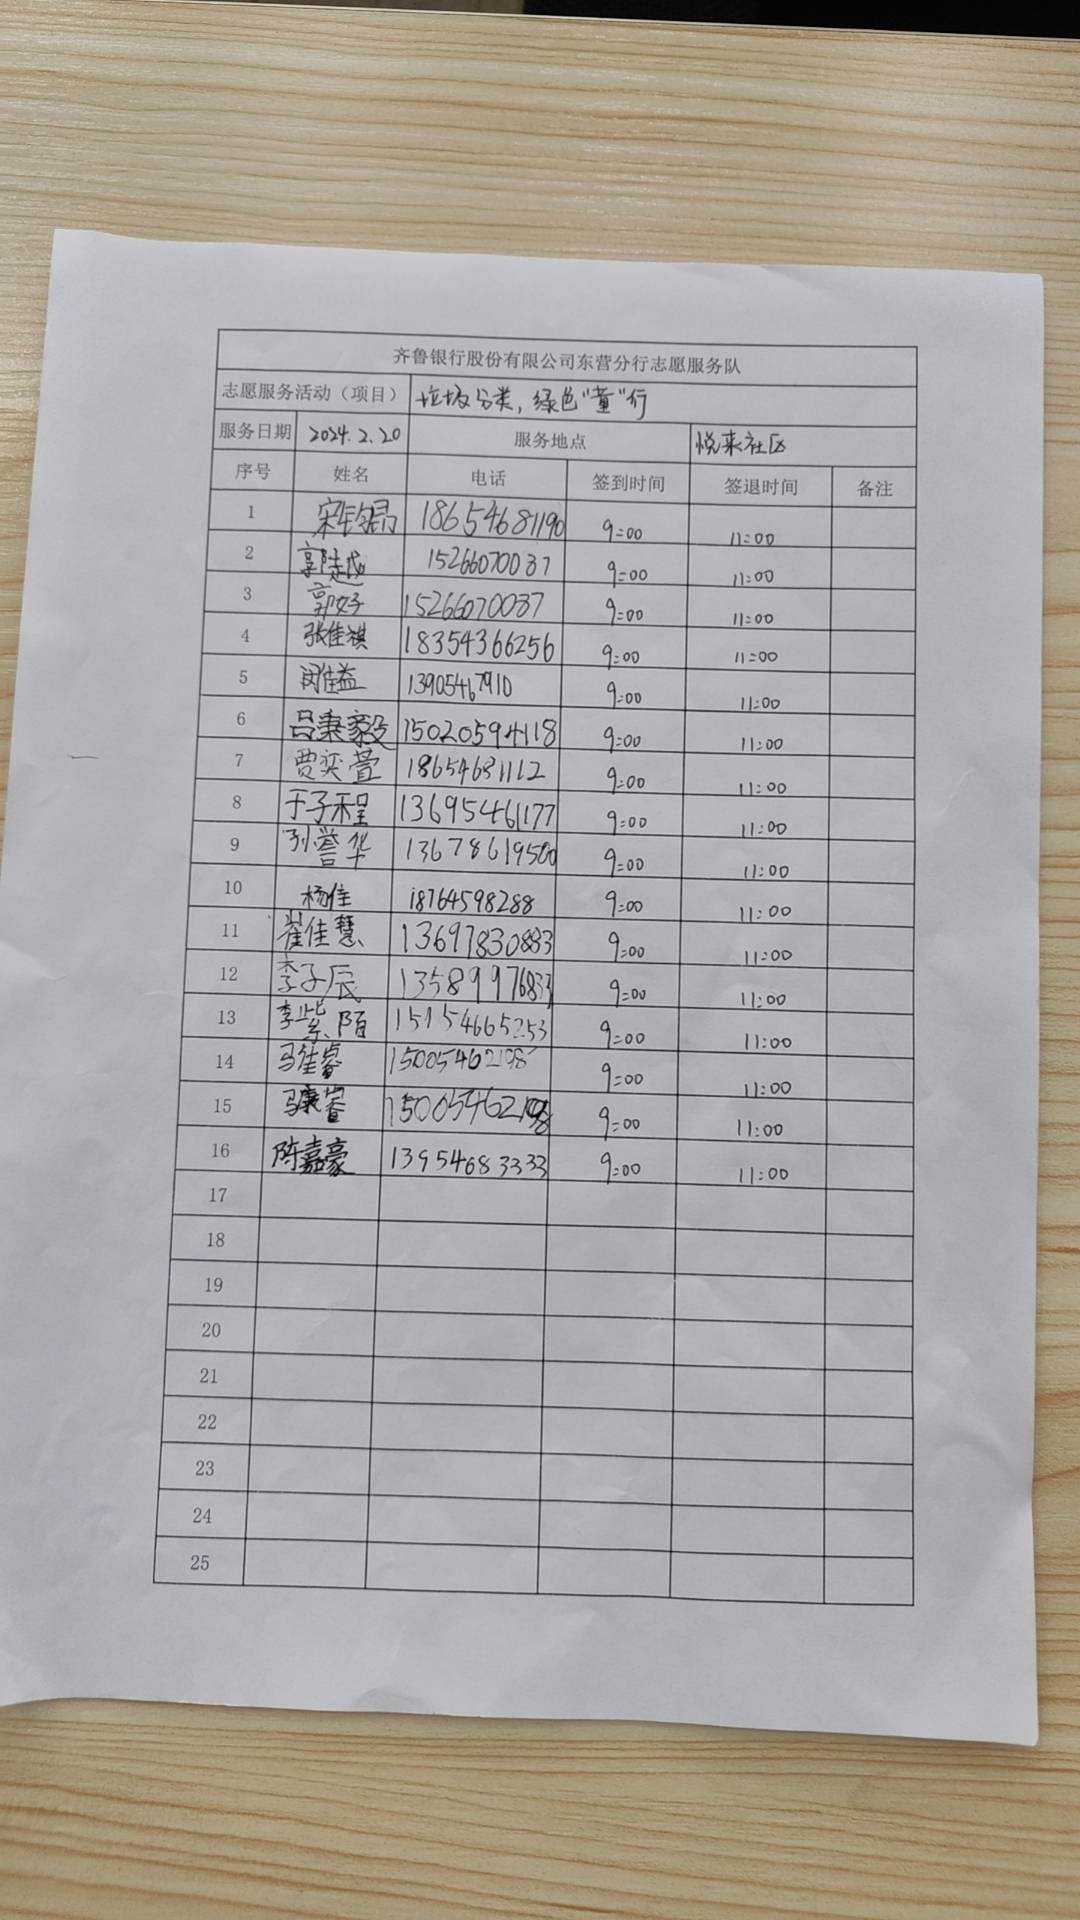 齐鲁银行股份有限公司东营分行志愿服务队
志愿服务活动（项目） 垃圾分类，绿色"童"行
服务日期 2024.2.20 服务地点 悦来社区
序号 姓名 电话 签到时间 签退时间 备注
1 宋钤昂 18654681190 9:00 11:00
2 郭陆越 15266070037 9:00 11:00
3 郭好 15266070037 9:00 11:00
4 张佳祺 18354366256 9:00 11:00
5 闵佳益 13905467910 9:00 11:00
6 吕秉毅 15020594118 9:00 11:00
7 贾奕萱 18654631112 9:00 11:00
8 于子程 13695461177 9:00 11:00
9 孙誉华 13678619500 9:00 11:00
10 杨佳 18764598288 9:00 11:00
11 崔佳慧 13697830883 9:00 11:00
12 李子辰 13589976833 9:00 11:00
13 李紫陌 15154665253 9:00 11:00
14 马佳睿 15005462198 9:00 11:00
15 马康睿 15005462198 9:00 11:00
16 陈嘉豪 13954683333 9:00 11:00
17
18
19
20
21
22
23
24
25